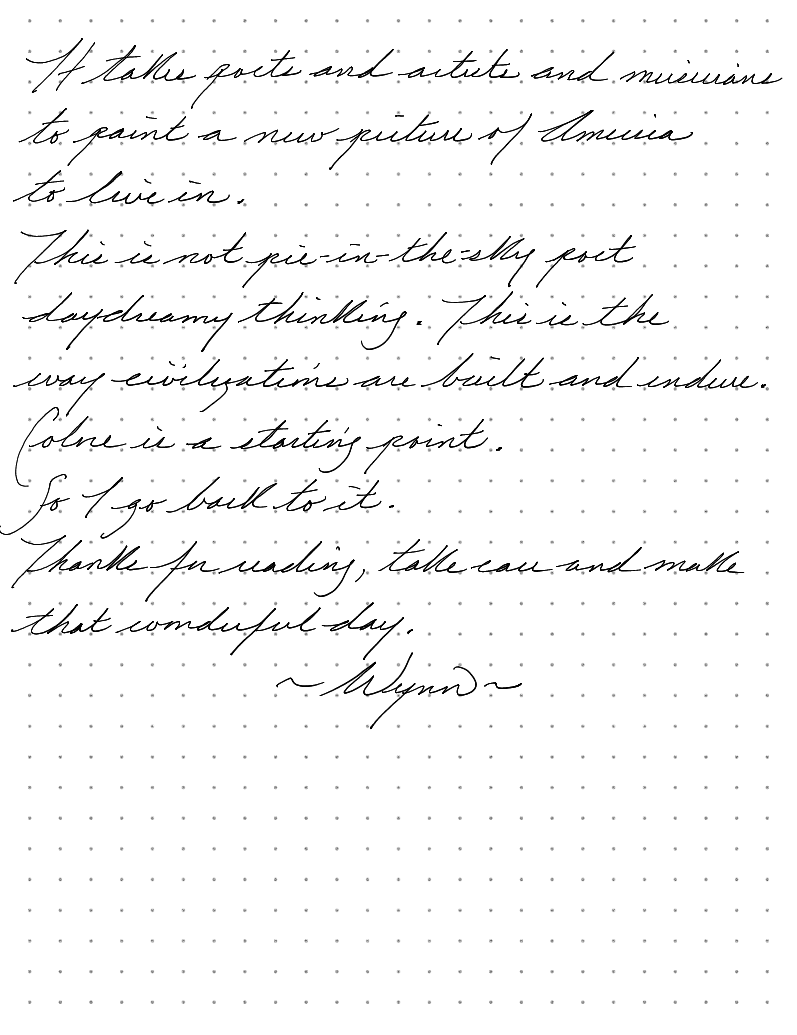 It takes poets and artists and musicians
to paint a new picture of America
to live in.
This is not pie-in-the-sky poet
daydreamy thinking. This is the
way civilizations are built and endure.
Colne is a starting point.
So I go back to it.
Thanks for reading, take care and make
that wonderful day.
~ Wynn ~